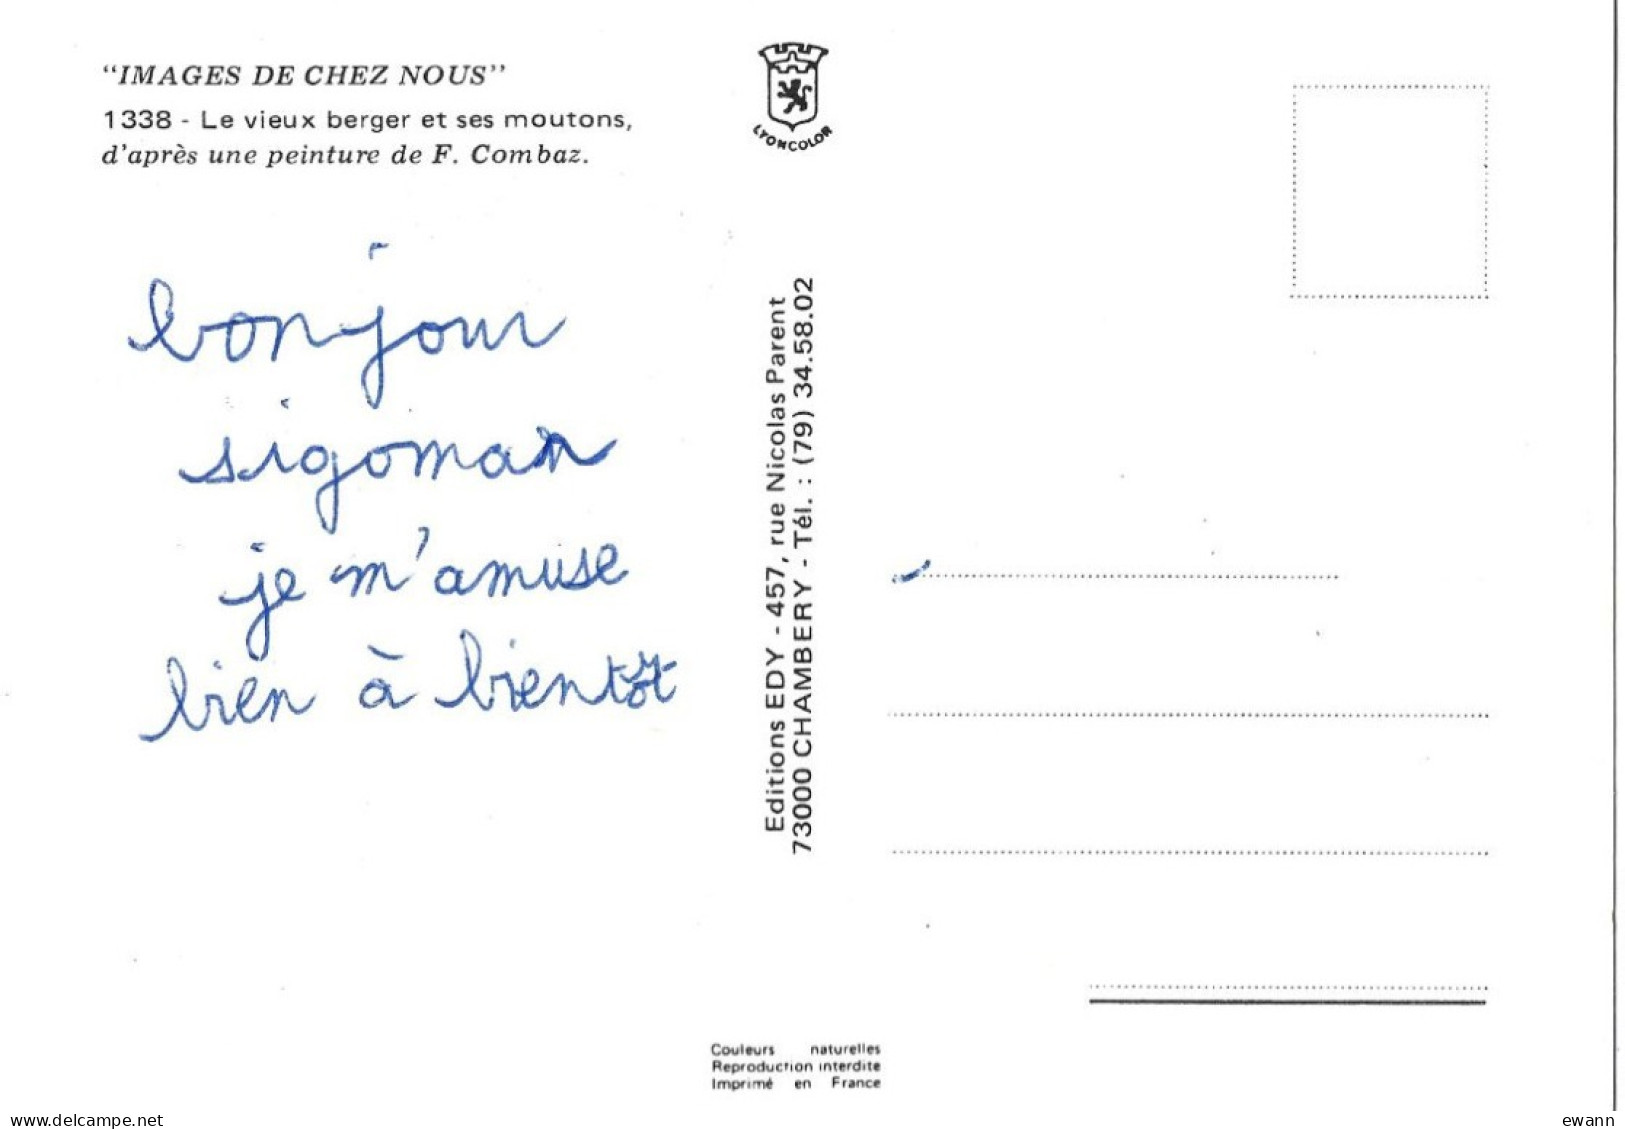 "IMAGES DE CHEZ NOUS"
1338 - Le vieux berger et ses moutons,
d'après une peinture de F. Combaz.
LYONCOLOR
bonjour
sigoman
je m'amuse
bien à bientôt
Editions EDY - 457, rue Nicolas Parent
73000 CHAMBERY - Tél. : (79) 34.58.02
Couleurs naturelles
Reproduction interdite
Imprimé en France
delcampe.net
ewann